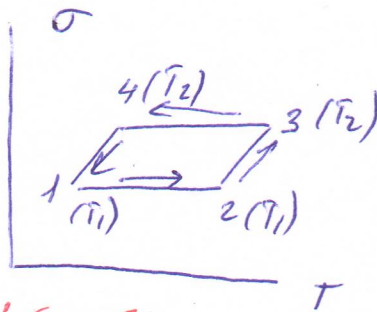 σ
4 (T₂)
3 (T₂)
1
(T₁)
2 (T₁)
T